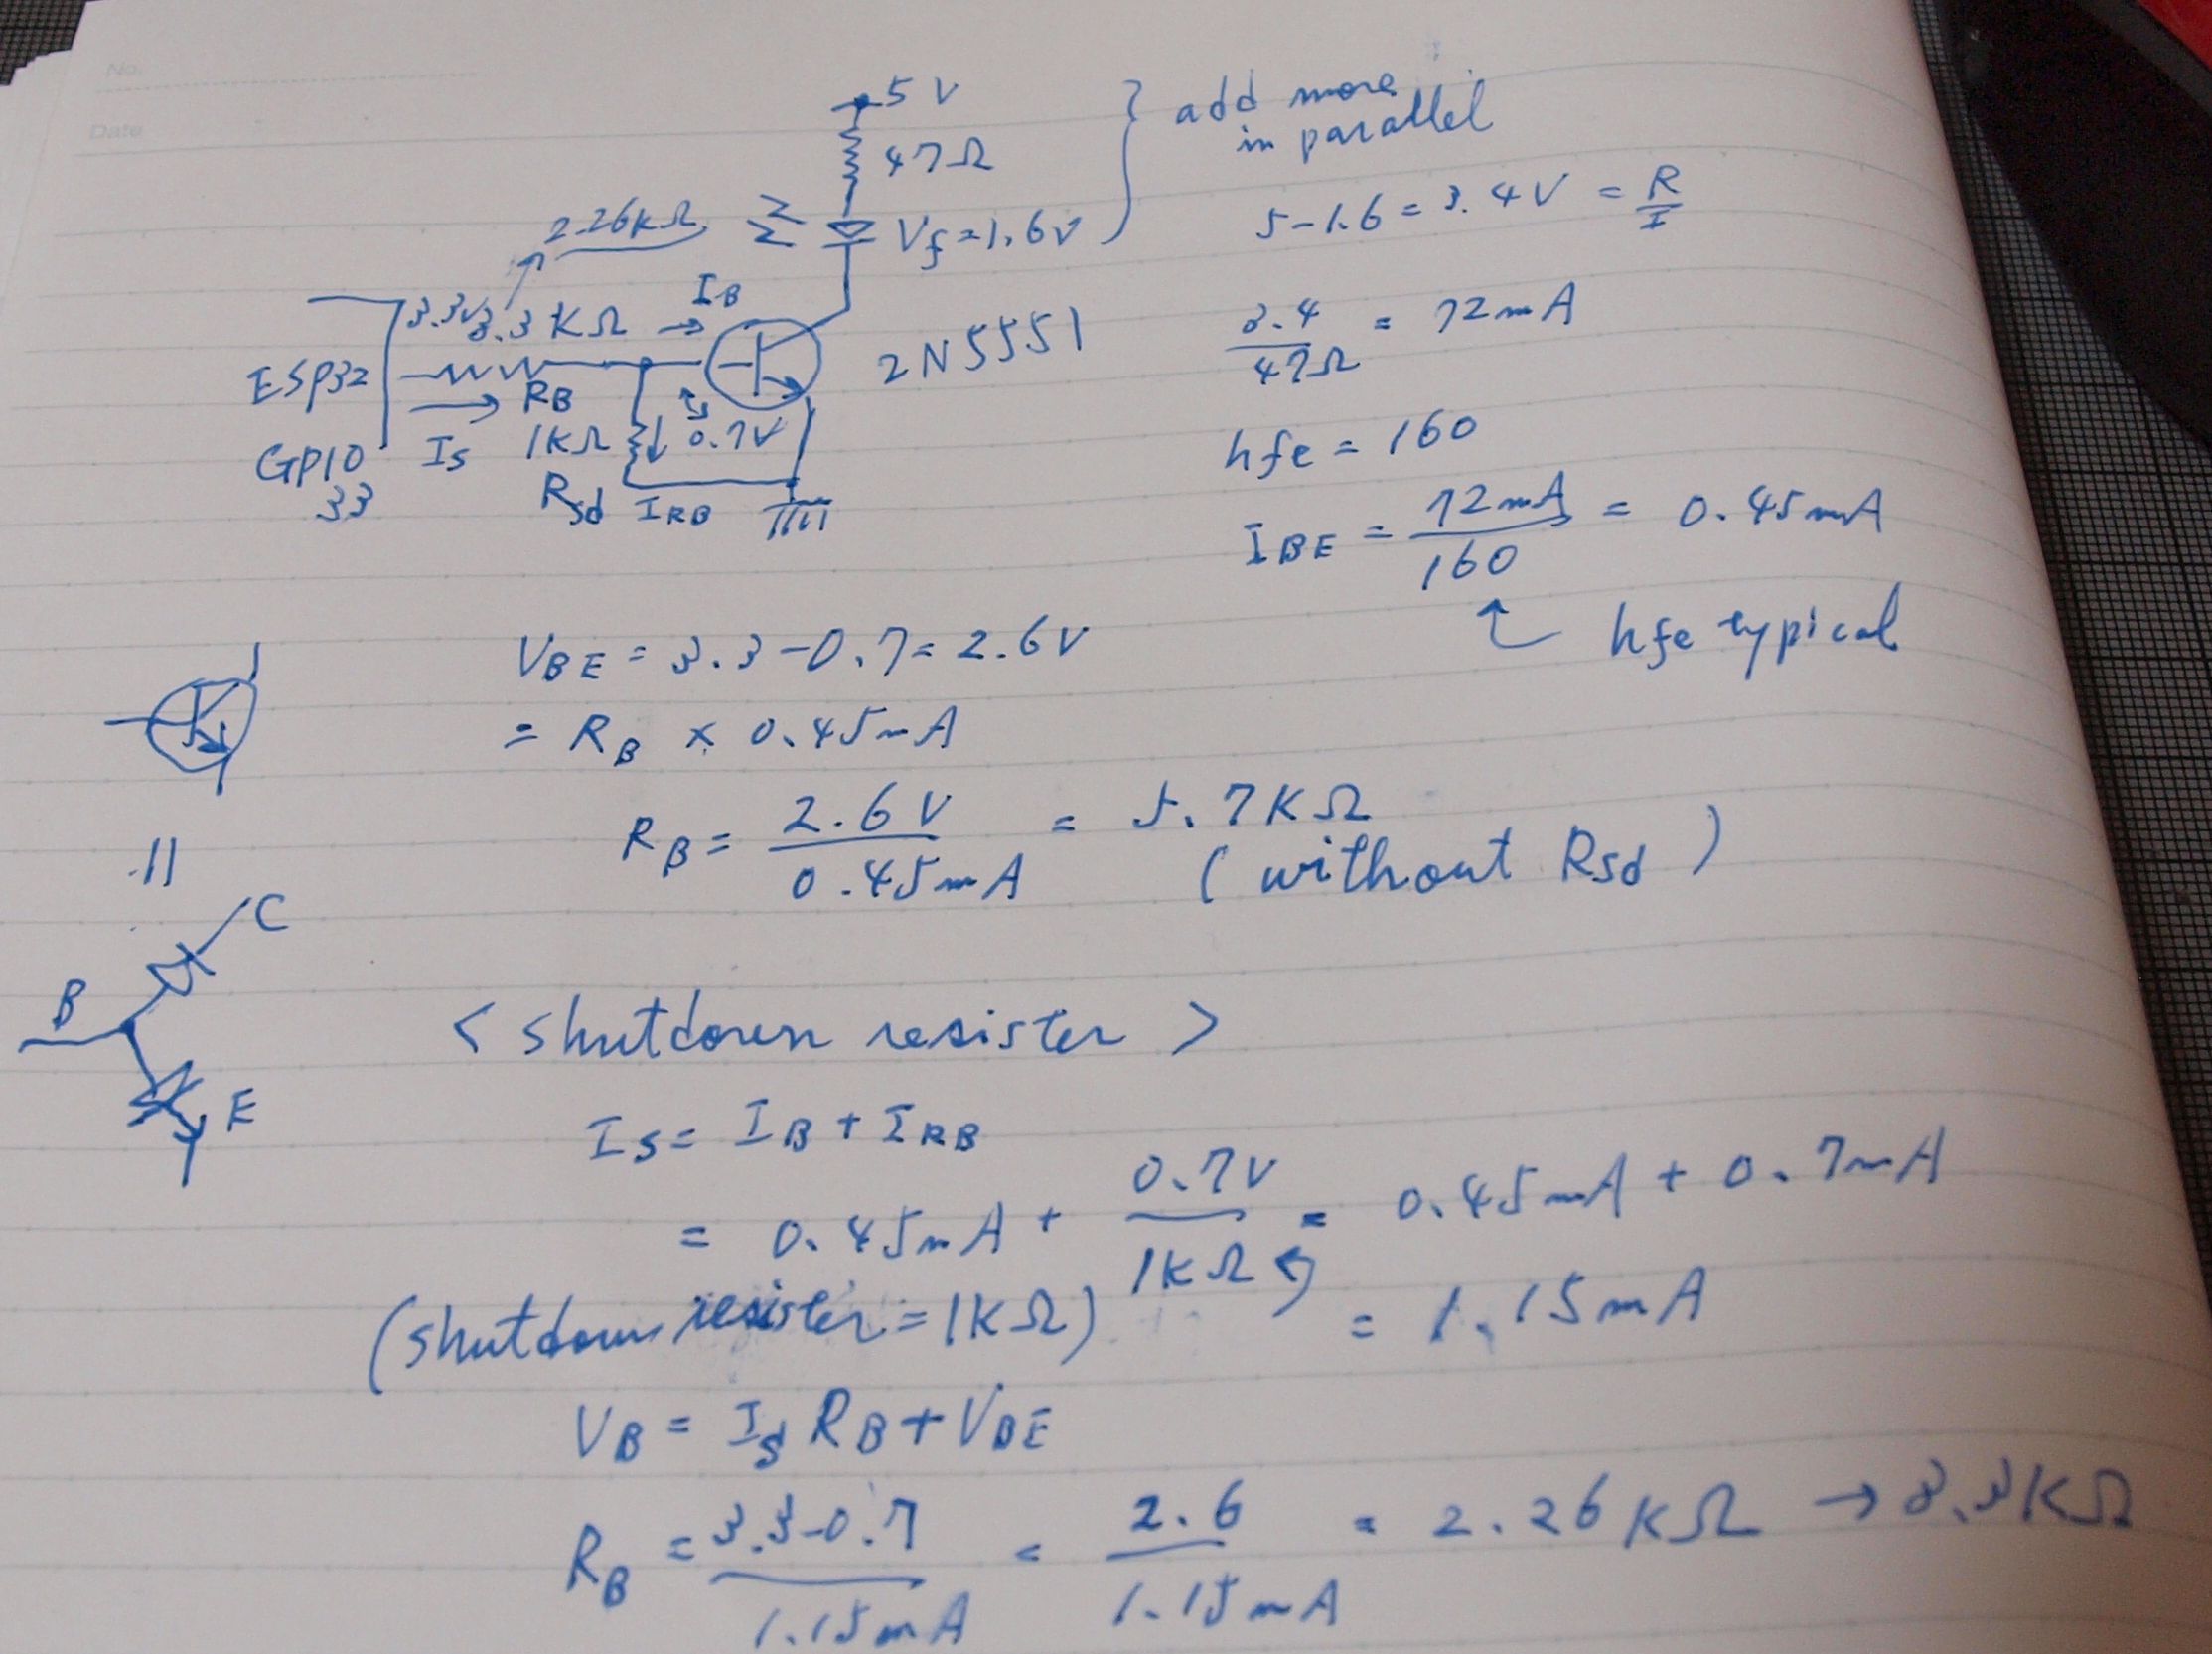 No.
Date
5V
47Ω
Vf=1.6V
} add more
in parallel
5-1.6=3.4V = R/I
2.26kΩ
3.3V 3.3KΩ
IB
ESP32
RB
GPIO
33
Is
1KΩ
0.7V
Rsd
IRB
2N5551
3.4/47Ω = 72mA
hfe = 160
IBE = 72mA/160 = 0.45mA
hfe typical
VBE = 3.3-0.7= 2.6V
= RB × 0.45mA
RB = 2.6V/0.45mA = 5.7KΩ
(without Rsd)
C
B
E
<shutdown resister>
Is = IB + IRB
= 0.45mA + 0.7V/1KΩ = 0.45mA + 0.7mA
(shutdown resister=1KΩ)
= 1.15mA
VB = Is RB + VBE
RB = 3.3-0.7/1.15mA = 2.6/1.15mA = 2.26KΩ → 3.3KΩ